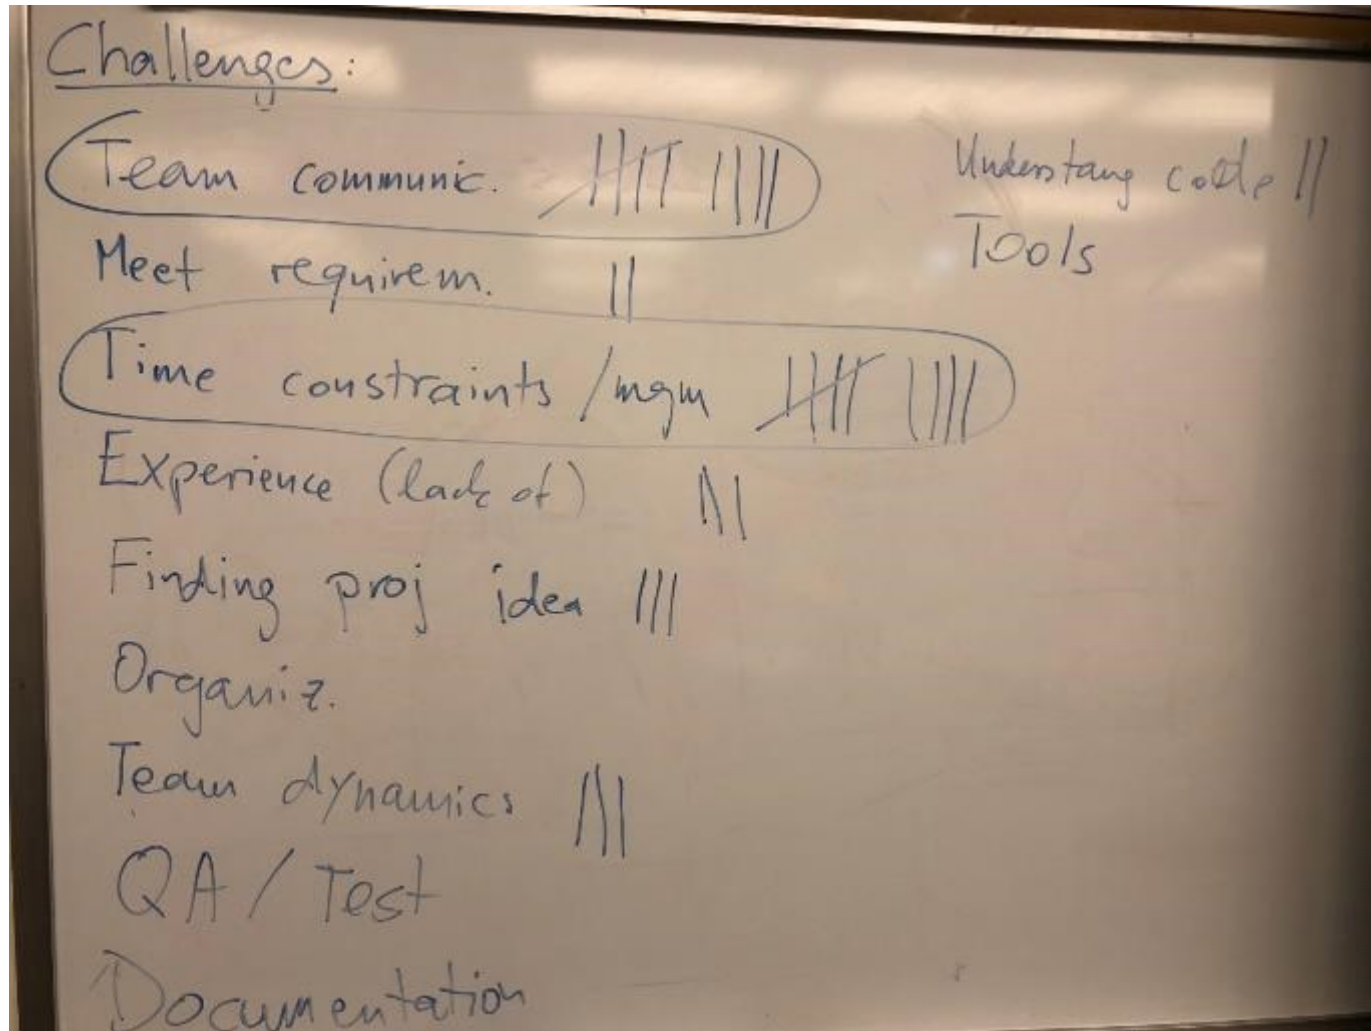 Challenges:
Team communic.
Meet requirem.
Time constraints /mgm
Experience (lack of)
Finding proj idea
Organiz.
Team dynamics
QA / Test
Documentation
Understang code
Tools